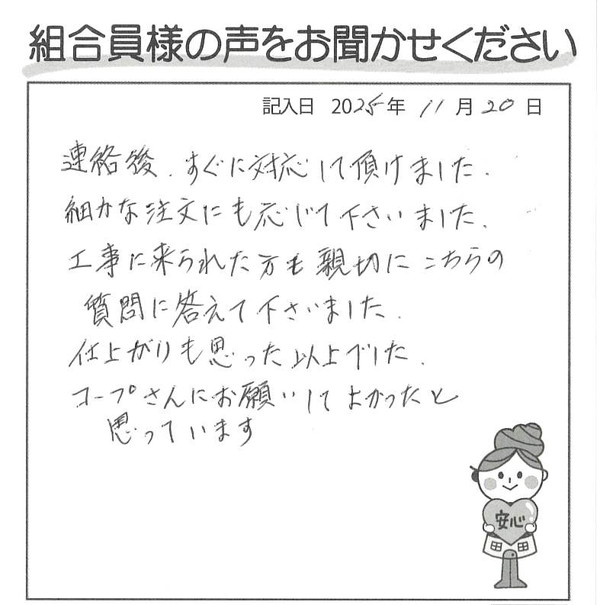 組合員様の声をお聞かせください
記入日 2025年 11月20日
連絡後、すぐに対応して頂けました。
細かな注文にも応じて下さいました。
工事に来られた方も親切にこちらの
質問に答えて下さいました。
仕上がりも思った以上でした。
コープさんにお願いしてよかったと
思っています
安心